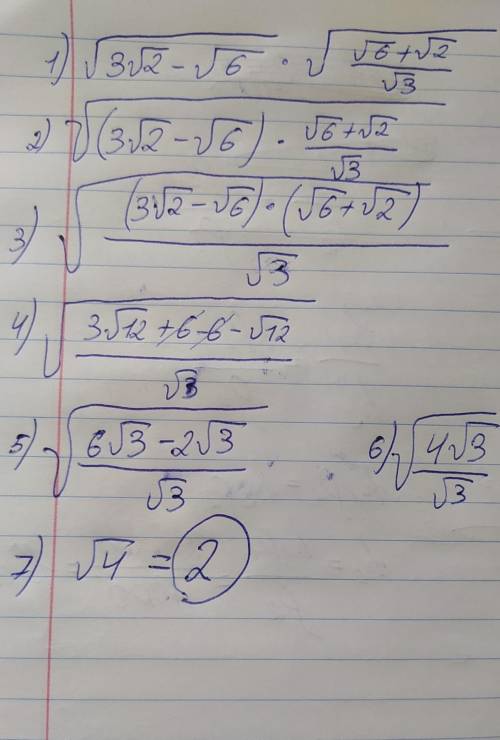 1) √(3√2 − √6) · √((√6 + √2)/√3)
2) √((3√2 − √6) · (√6 + √2)/√3)
3) √(((3√2 − √6) · (√6 + √2))/√3)
4) √((3√12 + 6 − 6 − √12)/√3)
5) √((6√3 − 2√3)/√3) 6) √((4√3)/√3)
7) √4 = 2